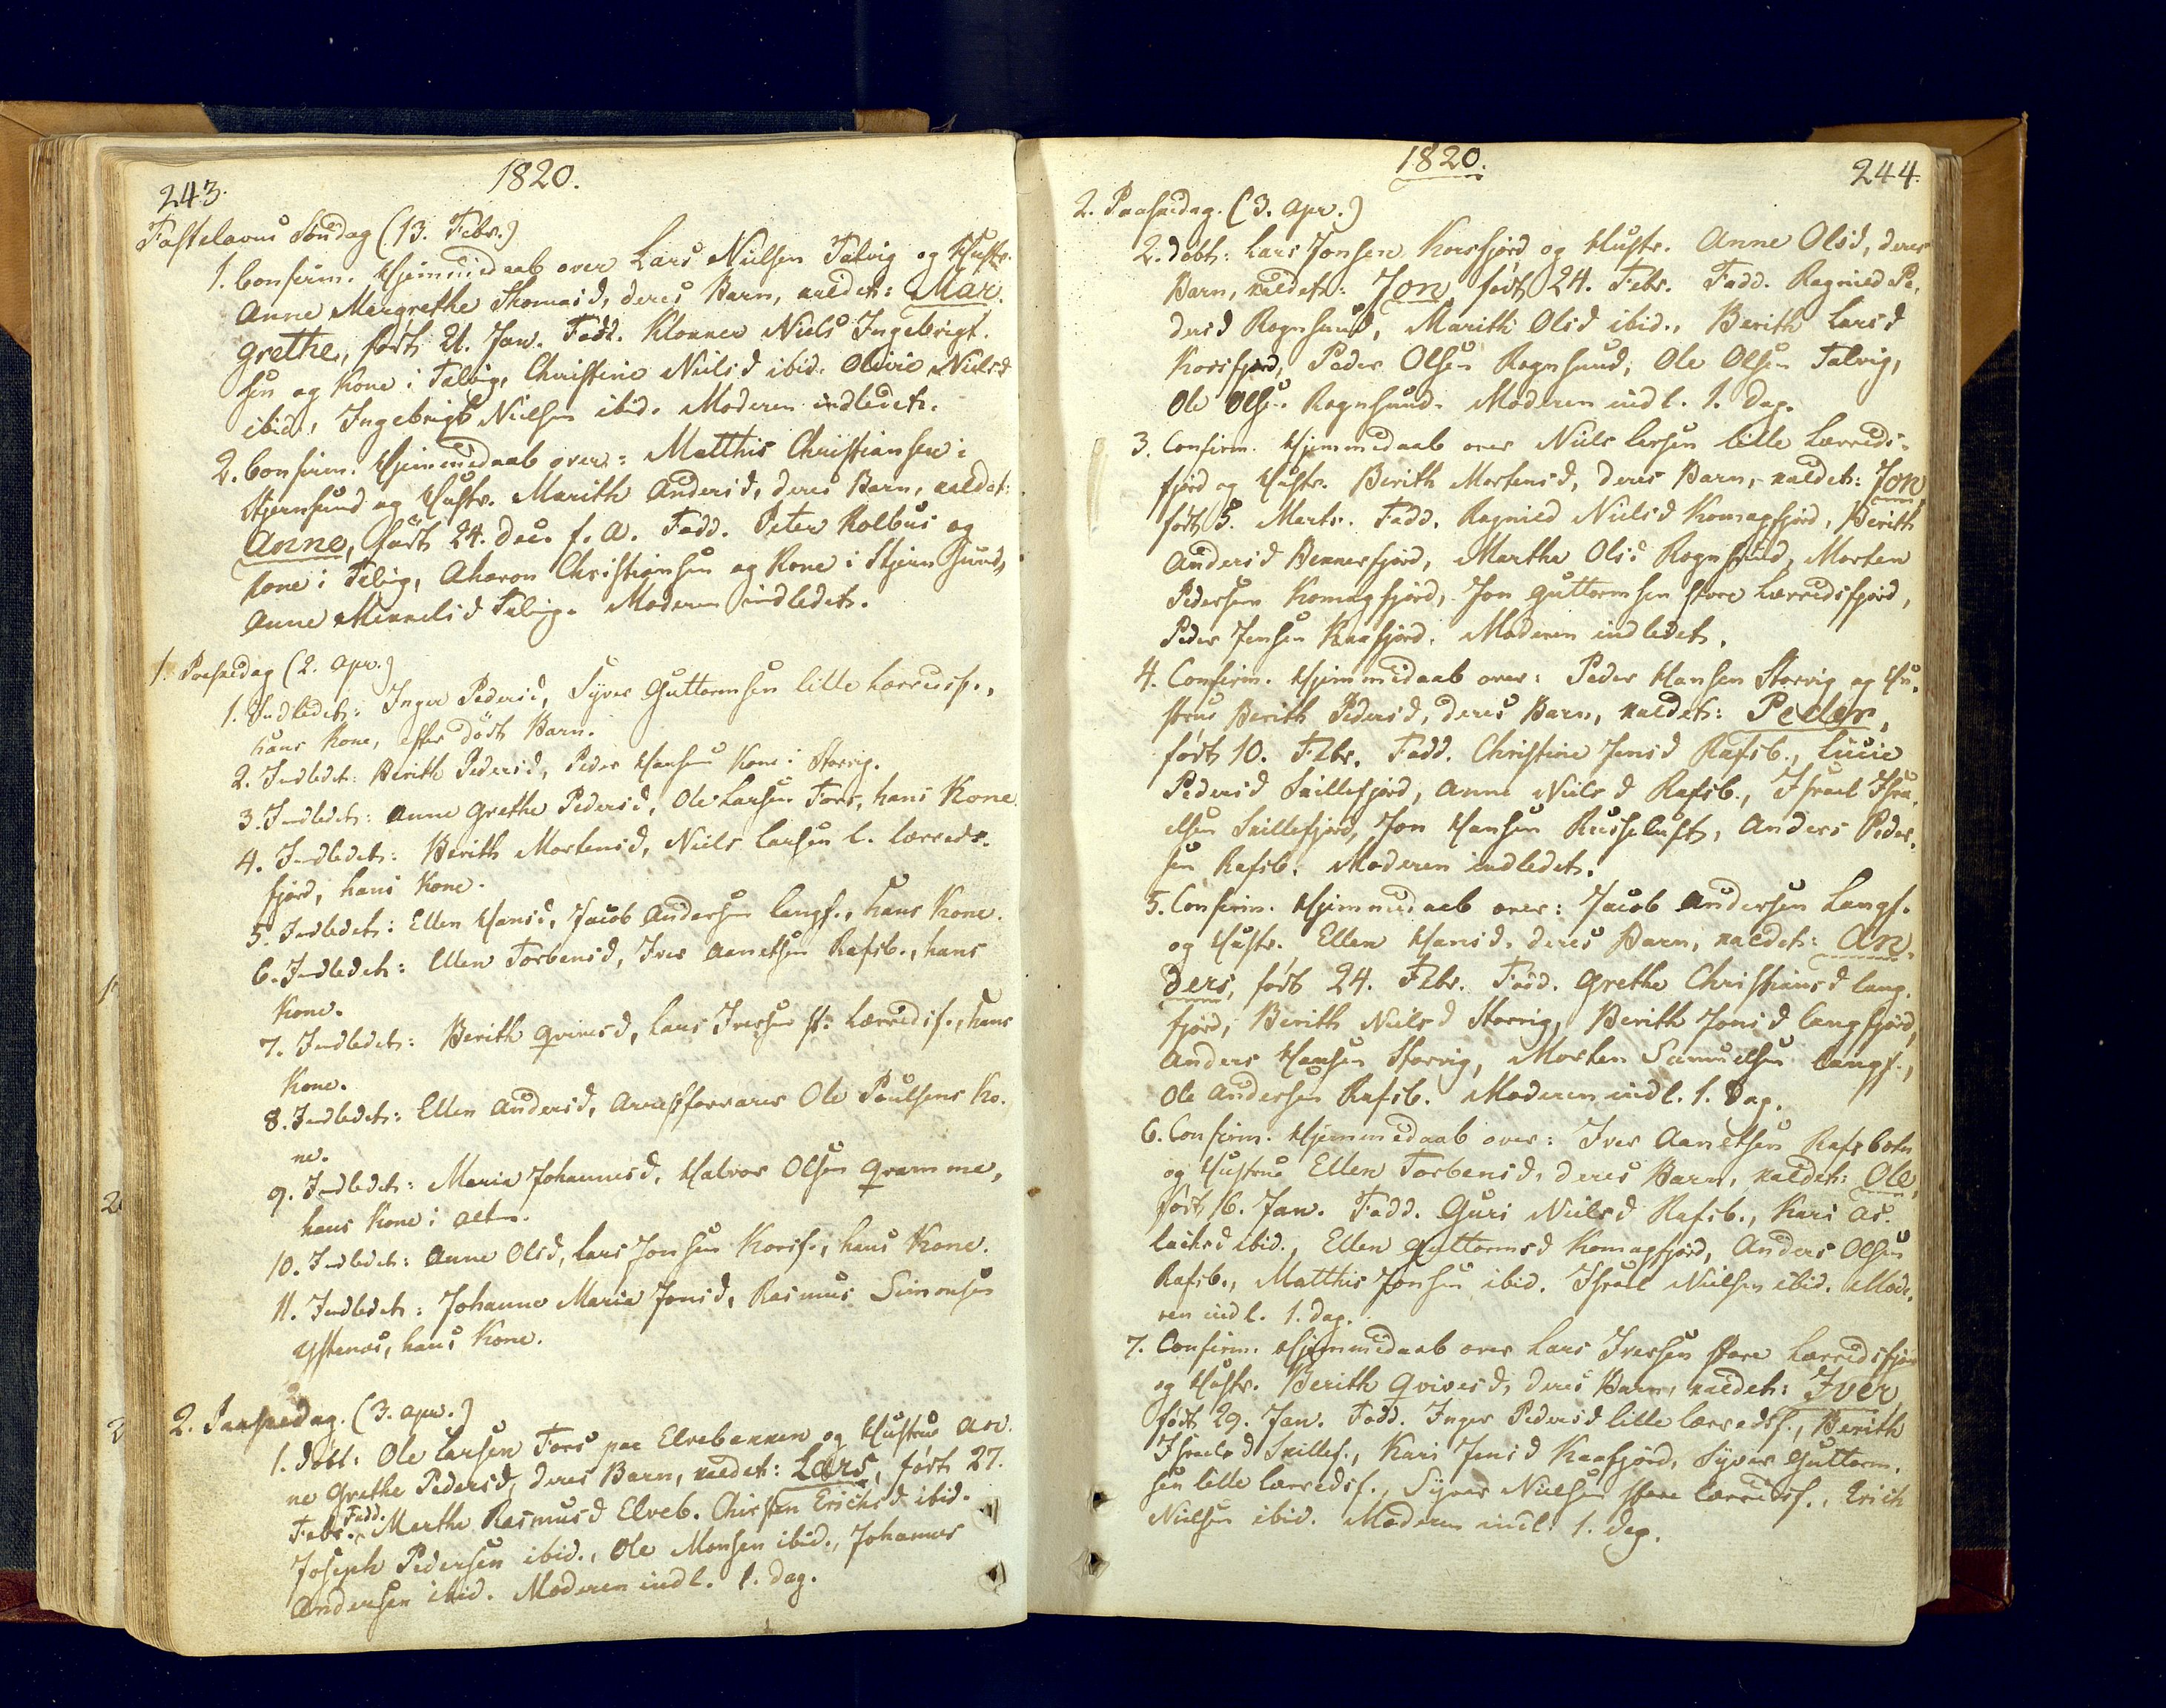 243.
1820.
Fastelavns Søndag (13. Febr.)
1. Confirm. Hjemmedaab over Lars Nielsen Talvig og Hustr.
Anne Margrethe Thomasd, deres Barn, kaldet: Mar-
grethe, født 21. Jan. Fadd. Klokker Niels Ingebrigt-
sen og Kone i Talvig, Christine Nielsd ibid. Olivie Nielsd
ibid., Ingebrigt Nielsen ibid. Moderen indledet.
2. Confirm. Hjemmedaab over: Matthis Christiansen i
Stjernsund og Hustr. Marith Andersd, deres Barn, kaldet:
Anne, født 24. Dec. f. A. Fadd. Peter Kolbus og
Kone i Talvig, Aharon Christiansen og Kone i Stjernsund,
Anne Mikkelsd Talvig. Moderen indledet.
1. Paaskedag (2. Apr.)
1. Indledet: Inger Pedersd, Syver Guttormsen lille Lærredsf.,
hans Kone, efter dødt Barn.
2. Indledet: Berith Pedersd, Peder Hansens Kone i Storvig.
3. Indledet: Anne Grethe Pedersd, Ole Larsen Fors, hans Kone.
4. Indledet: Berith Mortensd, Niels Larsen l. Lærreds-
fjord, hans Kone.
5. Indledet: Ellen Hansd, Jacob Andersen Langf., hans Kone.
6. Indledet: Ellen Torbensd, Iver Aanetsen Rafsb., hans
Kone.
7. Indledet: Berith Qvivesd, Lars Iversen st. Lærredsf., hans
Kone.
8. Indledet: Ellen Andersd, Arrestforvarer Ole Poulsens Ko-
ne.
9. Indledet: Maria Johannesd, Halvor Olsen Qvamme,
hans Kone i Alten.
10. Indledet: Anne Olsd, Lars Jonsen Korsf., hans Kone.
11. Indledet: Johanne Maria Jonsd, Rasmus Simonsen
Ystenæs, hans Kone.
2. Paaskedag. (3. Apr.)
1. Døbt: Ole Larsen Fors paa Elvebakken og Hustrue An-
ne Grethe Pedersd, deres Barn, kaldet: Lars, født 27.
Febr. Fadd. Marthe Rasmusd Elveb. Chirsten Erichsd ibid.
Joseph Pedersen ibid., Ole Monsen ibid., Johannes
Andersen ibid. Moderen indl. 1. Dag.
1820.
244.
2. Paaskedag. (3. Apr.)
2. Døbt: Lars Jonsen Korsfjord og Hustr. Anne Olsd, deres
Barn, kaldet: Jon født 24. Febr. Fadd. Ragnild Pe-
dersd Rognsund, Marith Olsd ibid., Berith Larsd
Korsfjord, Peder Olsen Rognsund, Ole Olsen Talvig,
Ole Olsen Rognsund. Moderen indl. 1. Dag.
3. Confirm. Hjemmedaab over Niels Larsen lille Lærreds-
fjord og Hustr. Berith Mortensd, deres Barn, kaldet: Jon
født 5. Marts. Fadd. Ragnild Nielsd Komagfjord, Berith
Andersd Bekkerfjord, Marthe Olsd Rognsund, Morten
Pedersen Komagfjord, Jon Guttormsen store Lærredsfjord,
Peder Jensen Kaafjord. Moderen indledet.
4. Confirm. Hjemmedaab over: Peder Hansen Storvig og Hu-
strue Berith Pedersd, deres Barn, kaldet: Peder,
født 10. Febr. Fadd. Christine Jensd Rafsb., Lucie
Pedersd Skillefjord, Anne Nielsd Rafsb., Israel Isra-
elsen Skillefjord, Jon Hansen Russeluft, Anders Peder-
sen Rafsb. Moderen indledet.
5. Confirm. Hjemmedaab over: Jacob Andersen Langf.
og Hustr. Ellen Hansd, deres Barn, kaldet: An-
ders, født 24. Febr. Fadd. Grethe Christiansd Lang-
fjord, Berith Nielsd Storvig, Berith Jonsd Langfjord,
Anders Hansen Storvig, Morten Samuelsen Langf.,
Ole Andersen Rafsb. Moderen indl. 1. Dag.
6. Confirm. Hjemmedaab over: Iver Aanetsen Rafsbotn
og Hustrue Ellen Torbensd, deres Barn, kaldet: Ole,
født 16. Jan. Fadd. Guri Nielsd Rafsb., Kari As-
lachsd ibid., Ellen Guttormsd Komagfjord, Anders Olsen
Rafsb., Matthis Jonsen ibid. Israel Nielsen ibid. Mode-
ren indl. 1. Dag.
7. Confirm. Hjemmedaab over Lars Iversen store Lærredsfjord
og Hustr. Berith Qvivesd, deres Barn, kaldet: Iver,
født 29. Jan. Fadd. Inger Pedersd lille Lærredsf., Berith
Israelsd Skillef., Kari Jensd Kaafjord, Syver Guttorm-
sen lille Lærredsf., Syver Nielsen store Lærredsf., Erich
Nielsen ibid. Moderen indl. 1. Dag.